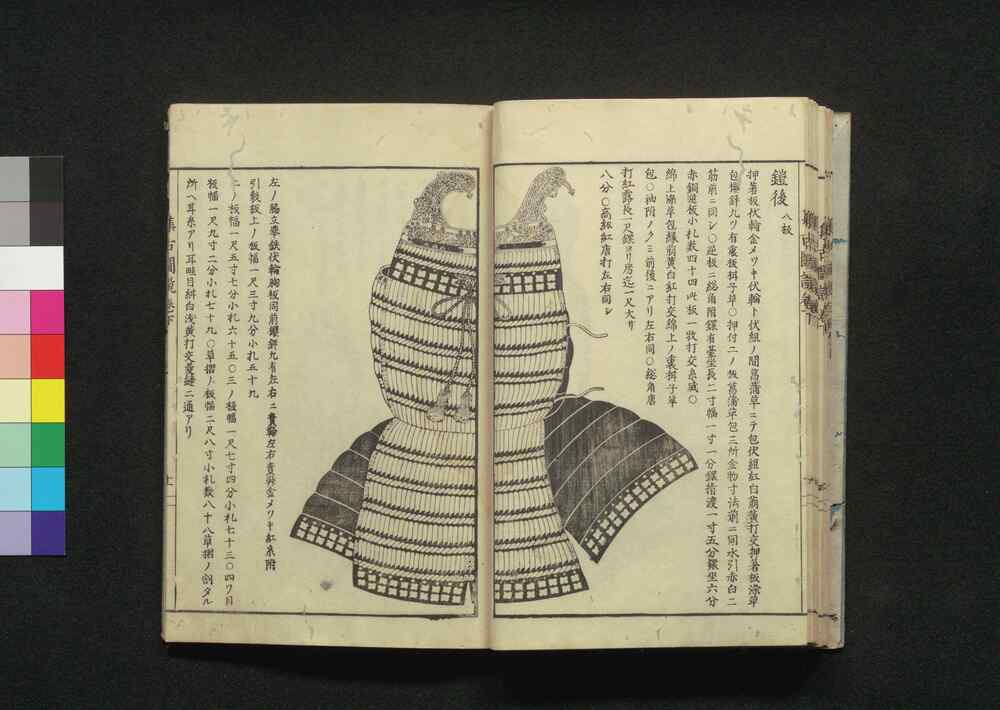 鎧後 八枚
押著板伏輪金メツキ伏輪ト伏組ノ間菖蒲革ニテ包伏組紅白萌黄打交押著板染革
包 鋲九ツ有裏板拵子革○押付二ノ板菖蒲革包三所金物寸法前ニ同水引赤白二
筋前ニ同シ○逆板ニ総角附鐶有臺坐長二寸幅一寸一分鐶指渡一寸五分鐶坐六分
赤銅逆板小札数四十四此板一枚打交糸威○
綿上染革包縁萌黄白紅打交綿上ノ裏拵子革
包○袖附ノクミ前後ニアリ左右同○総角唐
打紅露長一尺鐶ヨリ房迄一尺大サ
八分○高紐紅唐打左右同シ
左ノ脇立拳鉄伏輪胸板同前鐶鋲九有左右ニ 左右責 金メツキ紅糸附
引敷板上ノ板幅一尺三寸九分小札五十九
二ノ板幅一尺五寸七分小札六十五○三ノ板幅一尺七寸四分小札七十三○四ツ目
板幅一尺九寸二分小札七十九○草摺ノ板幅二尺八寸小札数八十八草摺ノ割タル
所ヘ耳糸アリ耳畦目紺白浅黄打交菱縫二通アリ
集古図説巻下